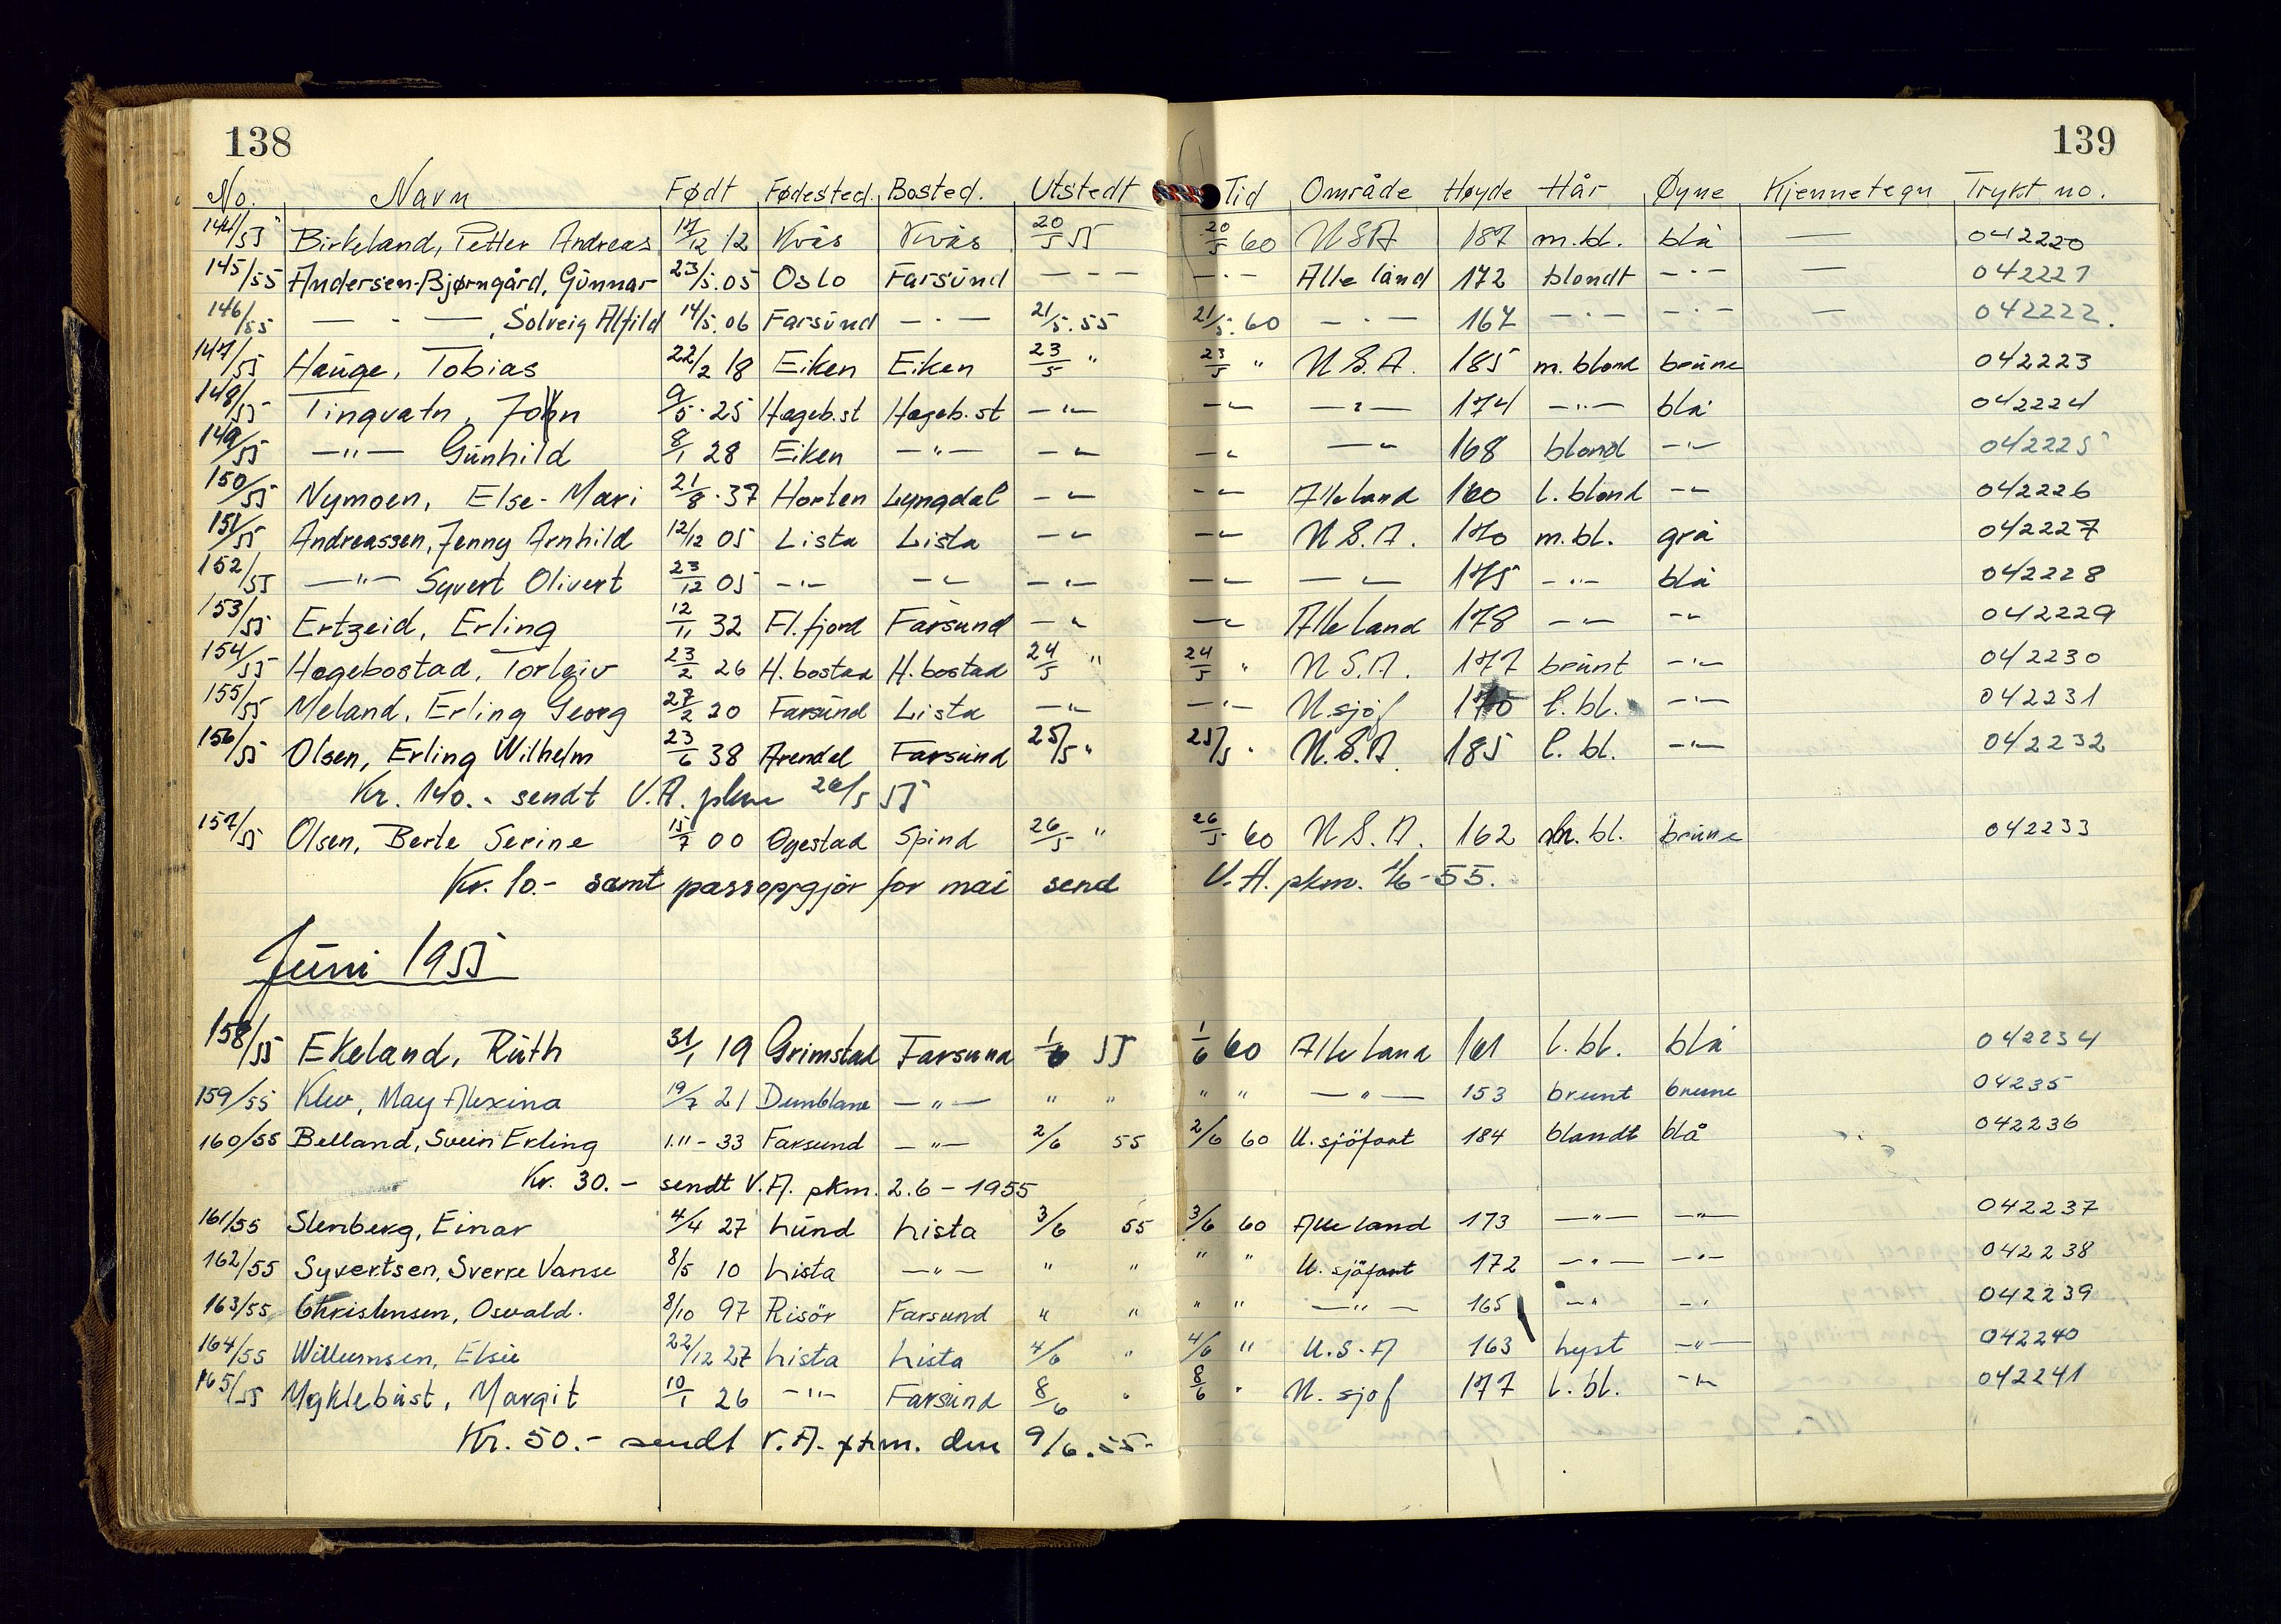 138
139
No. Navn Født Fødested. Bosted. Utstedt Tid Område Høyde Hår Øyne Kjennetegn Trykt no.
144/55 Birkeland, Petter Andreas 17/12 12 Kvås Kvås 20/5 55 20/5 60 USA 187 m.bl. blå — 042220
145/55 Andersen-Bjørngård, Gunnar 23/5.05 Oslo Farsund — - — — · — Alle land 172 blondt — · — — 042221
146/55 — - — , Solveig Alfild 14/5.06 Farsund — · — 21/5.55 21/5.60 — · — 167 — · — — · — — 042222.
147/55 Hauge, Tobias 22/2 18 Eiken Eiken 23/5 " 23/5 " U.S.A. 185 m. blond brune 042223
148/55 Tingvatn, John 9/5.25 Hageb.st Hageb.st —"— —"— —"— 174 —"— blå 042224
149/55 —"— Gunhild 8/1 28 Eiken —"— —"— —"— —"— 168 blond —"— 042225
150/55 Nymoen, Else-Mari 21/8.37 Horten Lyngdal —"— —"— Alle land 160 l. blond —"— 042226
151/55 Andreassen, Jenny Arnhild 12/12 05 Lista Lista —"— —"— U.S.A. 170 m.bl. grå 042227
152/55 —"— Syvert Olivert 23/12 05 —"— —"— —"— —"— —"— 175 —"— blå 042228
153/55 Ertzeid, Erling 12/11 32 Fl.fjord Farsund —"— —"— Alle land 178 —"— —"— 042229
154/55 Hægebostad, Torleiv 23/2 26 H.bostad H.bostad 24/5 " 24/5 " U.S.A. 177 brunt —"— 042230
155/55 Meland, Erling Georg 27/2 20 Farsund Lista —"— —"— U.sjøf 170 l.bl. —"— 042231
156/55 Olsen, Erling Wilhelm 23/6 38 Arendal Farsund 25/5 " 25/5 " U.S.A 185 l.bl. —"— 042232
Kr. 140.- sendt V.A. pkm 26/5 55
157/55 Olsen, Berte Serine 15/7 00 Øgestad Spind 26/5 " 26/5 60 U.S.A. 162 m.bl. brune 042233
Kr. 10.- samt passoppgjør for mai send V.A. pkm. 1/6-55.
Juni 1955
158/55 Ekeland, Ruth 31/1 19 Grimstad Farsund 1/6 55 1/6 60 Alle land 161 l.bl. blå 042234
159/55 Klev, May Alexina 19/7 21 Dunblane —"— " " " " —"— 153 brunt brune 04235
160/55 Belland, Svein Erling 1.11-33 Farsund —"— 2/6 55 2/6 60 U.sjöfart 184 blondt blå 042236
Kr. 30.- sendt V.A. pkm. 2.6-1955
161/55 Stenberg, Einar 4/4 27 Lund Lista 3/6 55 3/6 60 Alle land 173 —"— —"— 042237
162/55 Syvertsen, Sverre Vanse 8/5 10 Lista —"— " " " " U.sjöfart 172 —"— —"— 042238
163/55 Christensen, Osvald. 8/10 97 Risör Farsund " " " " —"— 165 —"— —"— 042239
164/55 Willumsen, Elsie 22/12 27 Lista Lista 4/6 " 4/6 " U.S.A 163 lyst —"— 042240
165/55 Myklebust, Margit 10/1 26 —"— Farsund 8/6 " 8/6 " U.sjøf 177 l.bl. —"— 042241
Kr. 50.- sendt V.A. pkm. den 9/6.55-